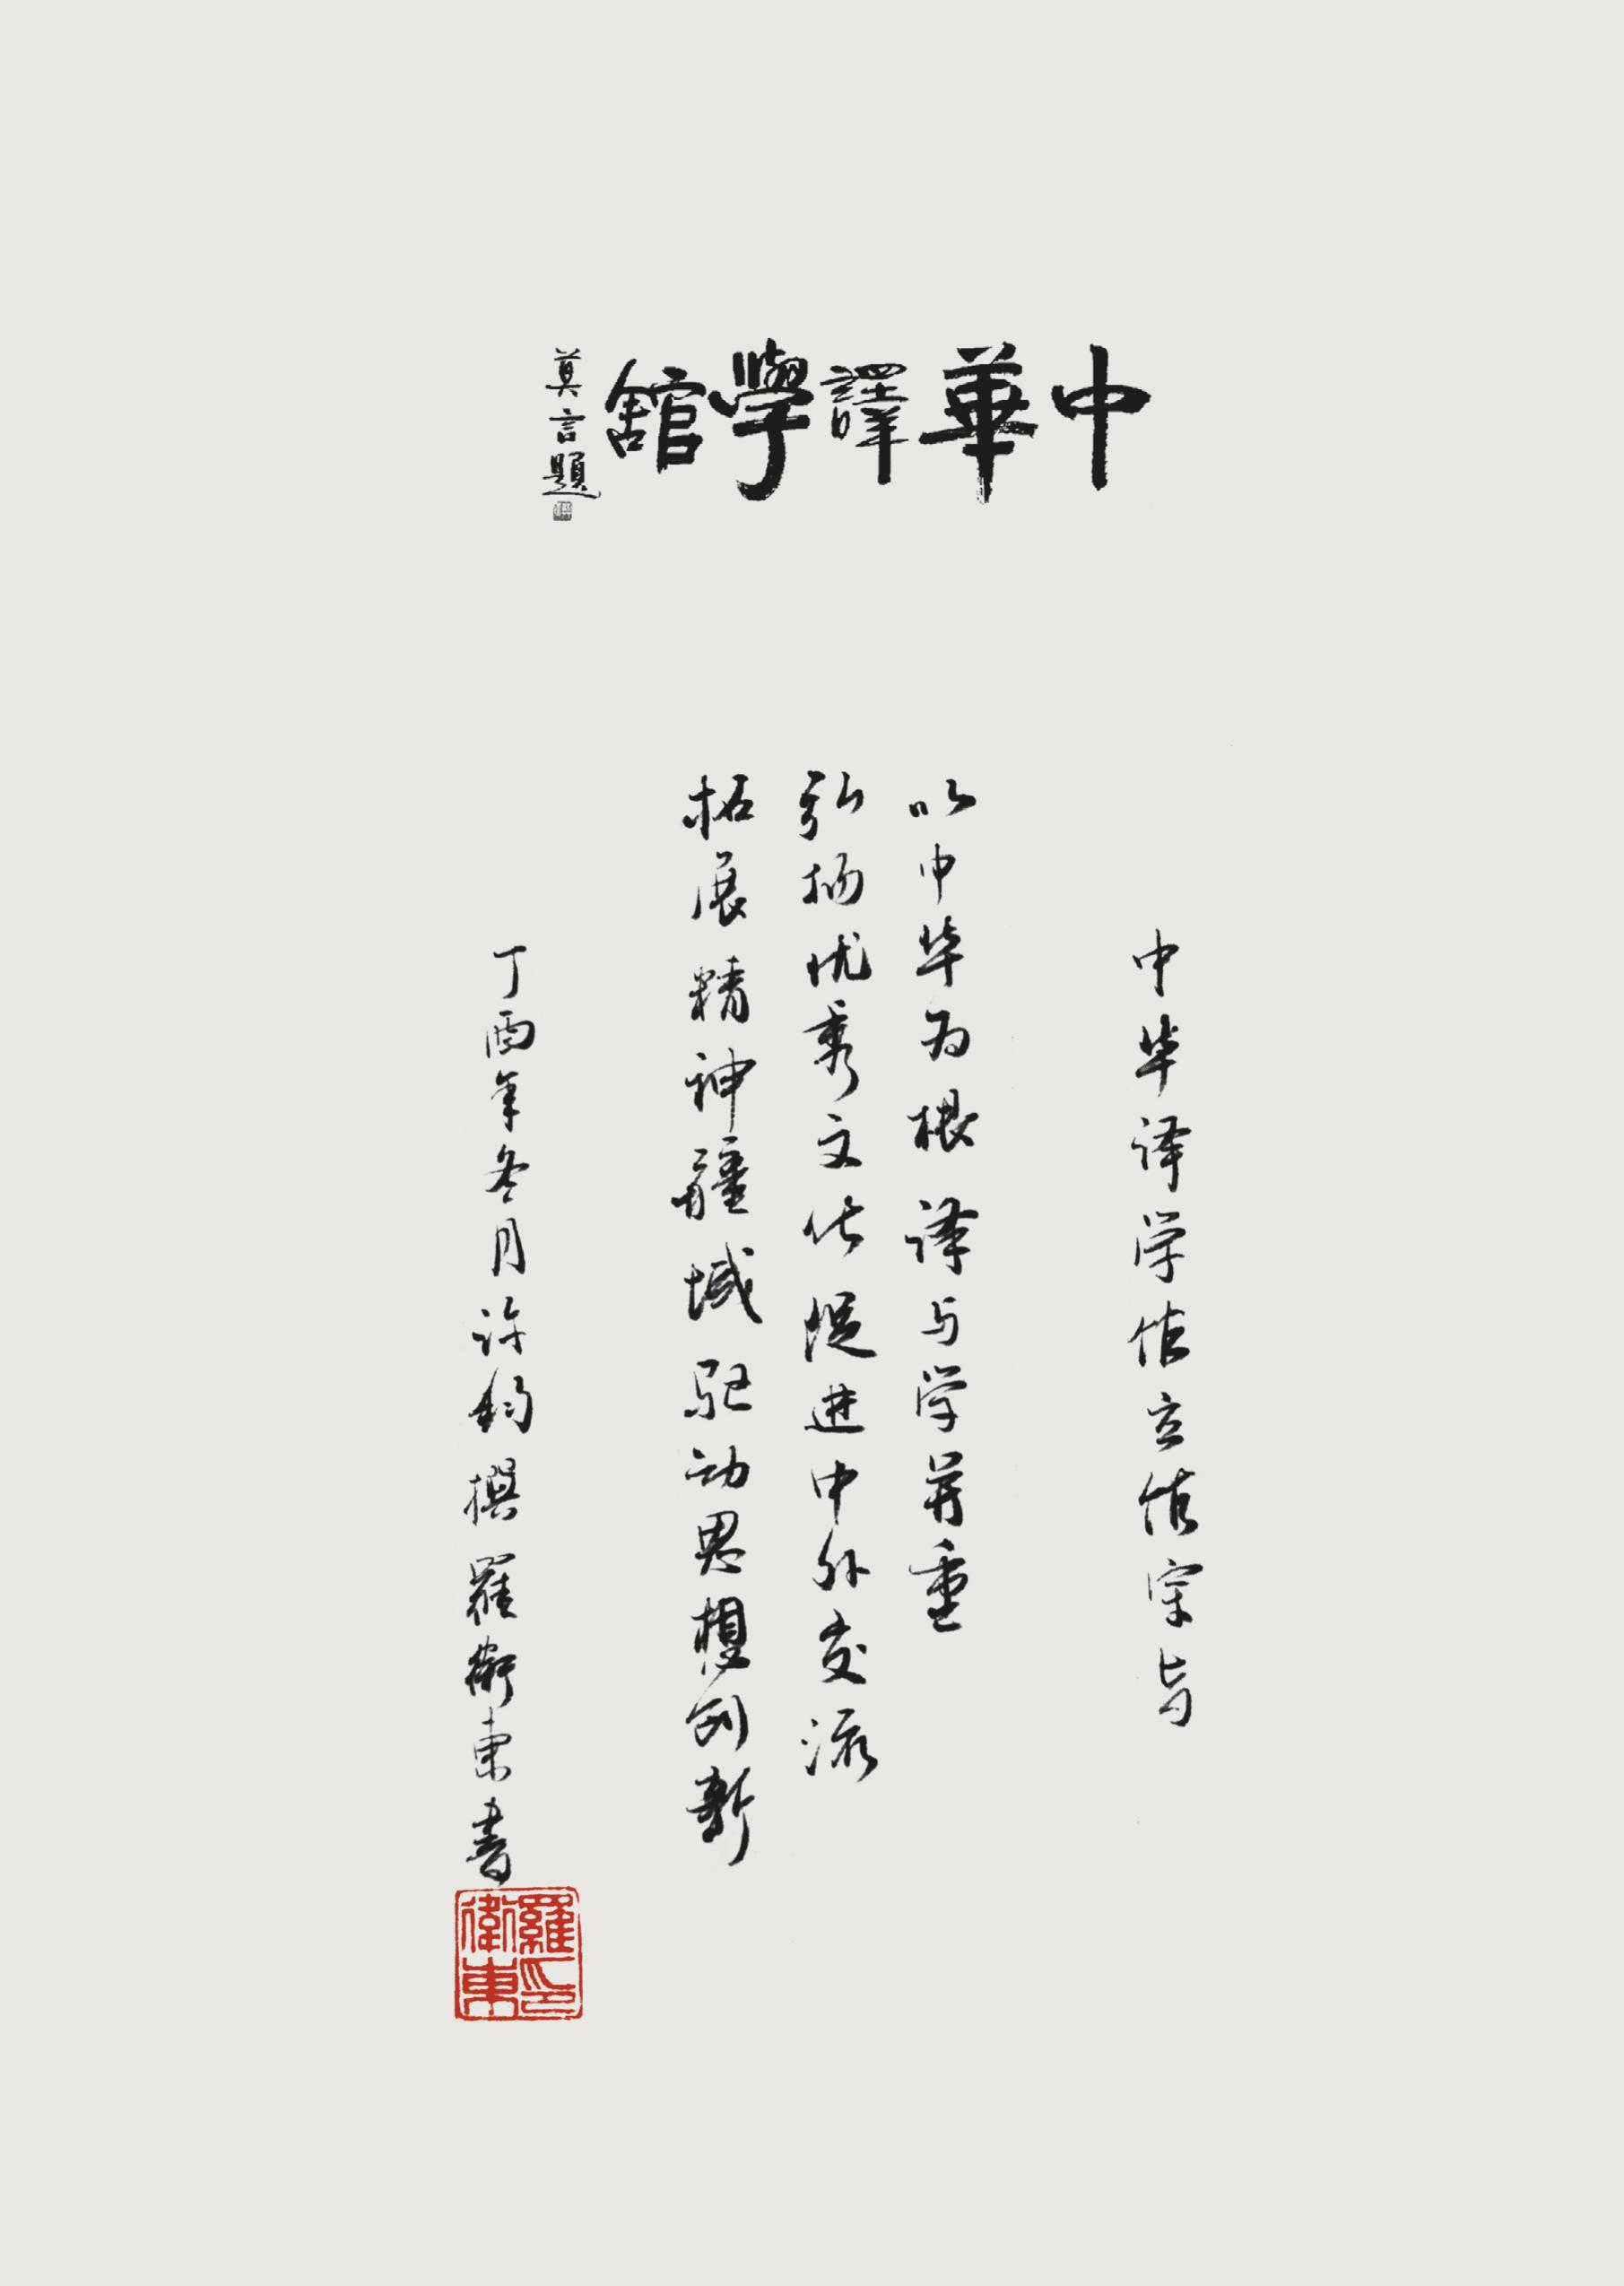 中華譯學館
莫言題
中华译学馆立馆宗旨
以中华为根 译与学并重
弘扬优秀文化 促进中外交流
拓展精神疆域 驱动思想创新
丁酉年冬月 许钧撰 羅衛東书
羅衛東印